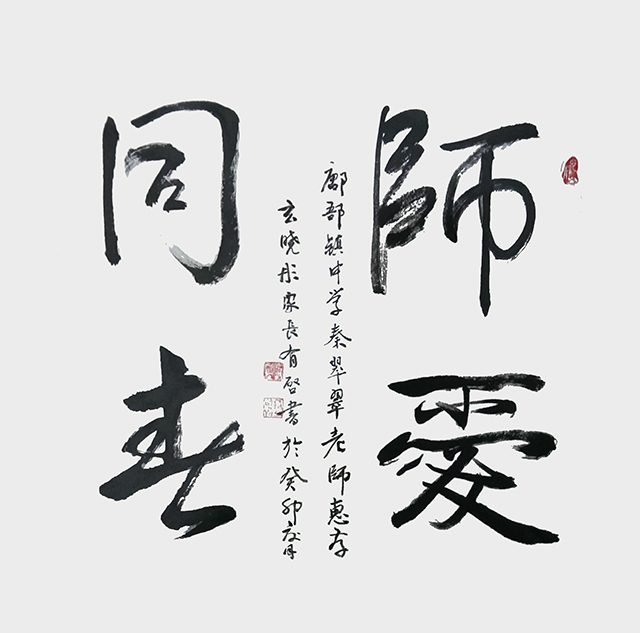 師愛
同春
鄌郚镇中学秦翠翠老師惠存
玄晓彤家長有启書於癸卯夏月